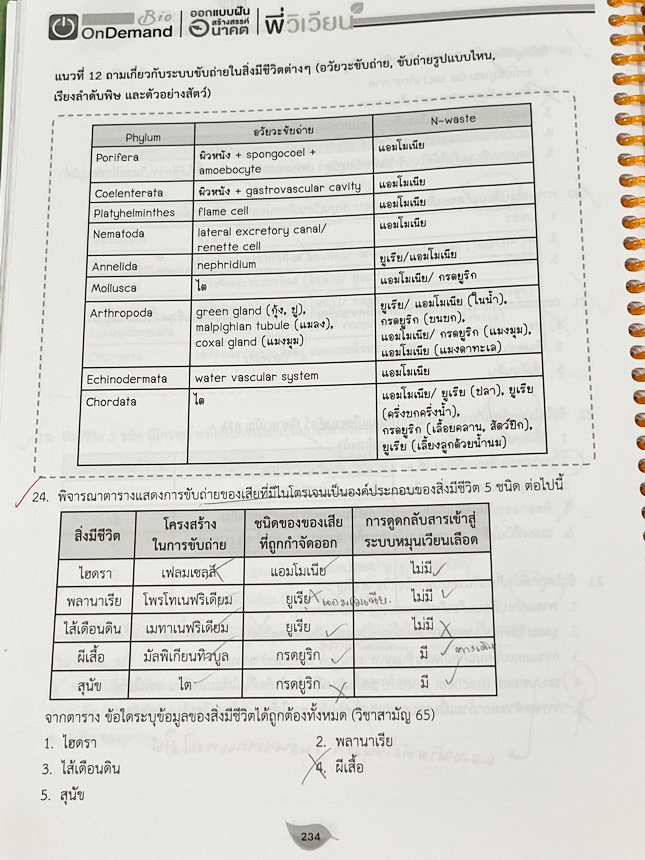 Bio
OnDemand
ออกแบบฝัน
สร้างสรรค์
อนาคต
พี่วิเวียน
แนวที่ 12 ถามเกี่ยวกับระบบขับถ่ายในสิ่งมีชีวิตต่างๆ (อวัยวะขับถ่าย, ขับถ่ายรูปแบบไหน,
เรียงลำดับพิษ และตัวอย่างสัตว์)
Phylum อวัยวะขับถ่าย N-waste
Porifera ผิวหนัง + spongocoel + แอมโมเนีย
amoebocyte
Coelenterata ผิวหนัง + gastrovascular cavity แอมโมเนีย
Platyhelminthes flame cell แอมโมเนีย
Nematoda lateral excretory canal/ แอมโมเนีย
renette cell
Annelida nephridium ยูเรีย/แอมโมเนีย
Mollusca ไต แอมโมเนีย/ กรดยูริก
Arthropoda green gland (กุ้ง, ปู), ยูเรีย/ แอมโมเนีย (ในน้ำ),
malpighian tubule (แมลง), กรดยูริก (บนบก),
coxal gland (แมงมุม) แอมโมเนีย/ กรดยูริก (แมงมุม),
แอมโมเนีย (แมงดาทะเล)
Echinodermata water vascular system แอมโมเนีย
Chordata ไต แอมโมเนีย/ ยูเรีย (ปลา), ยูเรีย
(ครึ่งบกครึ่งน้ำ),
กรดยูริก (เลื้อยคลาน, สัตว์ปีก),
ยูเรีย (เลี้ยงลูกด้วยน้ำนม)
24. พิจารณาตารางแสดงการขับถ่ายของเสียที่มีไนโตรเจนเป็นองค์ประกอบของสิ่งมีชีวิต 5 ชนิด ต่อไปนี้
สิ่งมีชีวิต โครงสร้าง ชนิดของของเสีย การดูดกลับสารเข้าสู่
ในการขับถ่าย ที่ถูกกำจัดออก ระบบหมุนเวียนเลือด
ไฮดรา เฟลมเซลล์ แอมโมเนีย ไม่มี
พลานาเรีย โพรโทเนฟริเดียม ยูเรีย แอมโมเนีย ไม่มี
ไส้เดือนดิน เมทาเนฟริเดียม ยูเรีย ไม่มี
ผีเสื้อ มัลพิเกียนทิวบูล กรดยูริก มี
สุนัข ไต กรดยูริก มี
จากตาราง ข้อใดระบุข้อมูลของสิ่งมีชีวิตได้ถูกต้องทั้งหมด (วิชาสามัญ 65)
1. ไฮดรา 2. พลานาเรีย
3. ไส้เดือนดิน 4. ผีเสื้อ
5. สุนัข
234